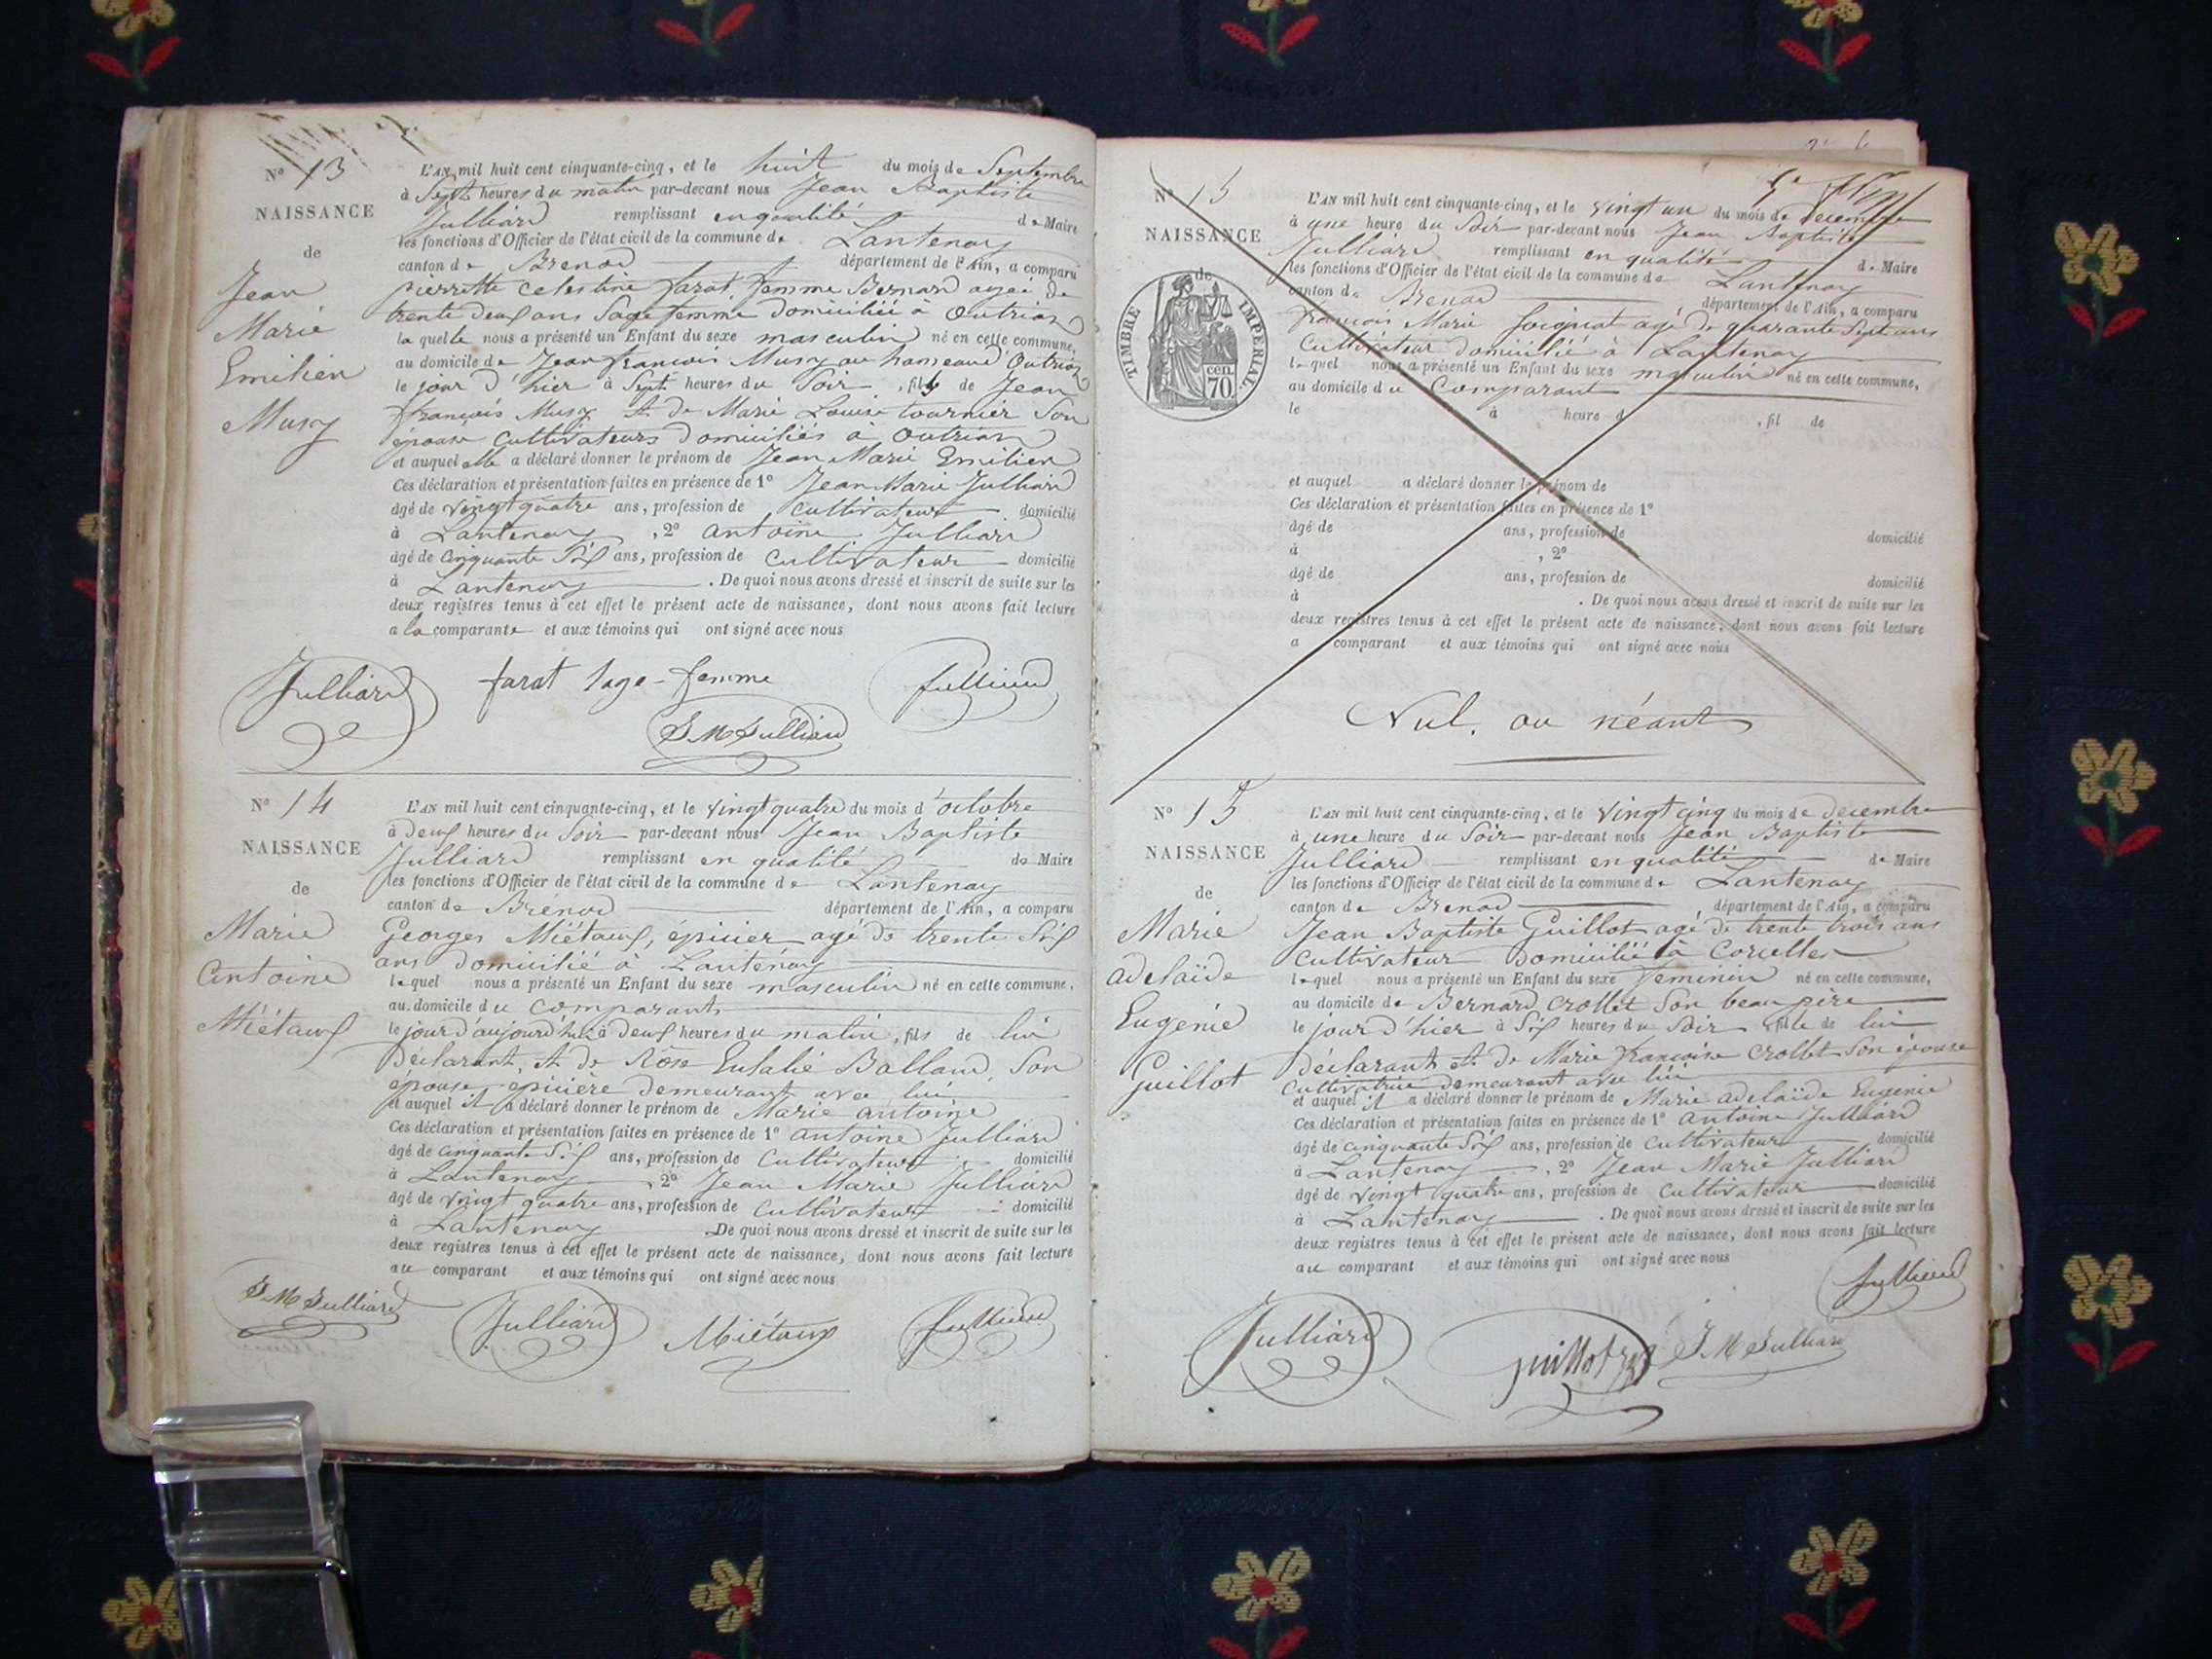 N° 13
NAISSANCE
de
Jean
Marie
Emilien
Musy
L'AN mil huit cent cinquante-cinq, et le huit du mois de Septembre
à Sept heures du matin par-devant nous Jean Baptiste
Julliard remplissant en qualité de Maire
les fonctions d'Officier de l'état civil de la commune de Lantenay
canton de Brenod département de l'Ain, a comparu
pierrette Celestine farat, femme Bernard agée de
trente deux ans Sage femme domiciliée à Outriaz
laquelle nous a présenté un Enfant du sexe masculin né en cette commune,
au domicile de Jean françois Musy au hameau d'Outriaz
le jour d'hier à Sept heures du Soir, fils de Jean
françois Musy et de Marie Louise tournier Son
épouse Cultivateurs domiciliés à Outriaz
et auquel elle a déclaré donner le prénom de Jean Marie Emilien
Ces déclaration et présentation faites en présence de 1° Jean Marie Julliard
âgé de vingt quatre ans, profession de Cultivateur domicilié
à Lantenay, 2° antoine Julliard
âgé de Cinquante Six ans, profession de Cultivateur domicilié
à Lantenay. De quoi nous avons dressé et inscrit de suite sur les
deux registres tenus à cet effet le présent acte de naissance, dont nous avons fait lecture
a la comparante et aux témoins qui ont signé avec nous
Julliard farat Sage-femme Julliard
J. M Julliard
N° 14
NAISSANCE
de
Marie
Antoine
Miétaux
L'AN mil huit cent cinquante-cinq, et le vingt quatre du mois d'octobre
à deux heures du Soir par-devant nous Jean Baptiste
Julliard remplissant en qualité de Maire
les fonctions d'Officier de l'état civil de la commune de Lantenay
canton de Brenod département de l'Ain, a comparu
Georges Miétaux, épicier agé de trente Six
ans domicilié à Lantenay
lequel nous a présenté un Enfant du sexe masculin né en cette commune,
au domicile du Comparant
le jour d'aujourd'hui à deux heures du matin, fils de lui
déclarant, et de Rose Eulalie Balland, Son
épouse, epicière demeurant avec lui
et auquel il a déclaré donner le prénom de Marie antoine
Ces déclaration et présentation faites en présence de 1° antoine Julliard
âgé de Cinquante Six ans, profession de Cultivateur domicilié
à Lantenay, 2° Jean Marie Julliard
âgé de vingt quatre ans, profession de Cultivateur domicilié
à Lantenay. De quoi nous avons dressé et inscrit de suite sur les
deux registres tenus à cet effet le présent acte de naissance, dont nous avons fait lecture
au comparant et aux témoins qui ont signé avec nous
J. M Julliard Julliard Miétaux Julliard
N° 15
NAISSANCE
de
TIMBRE IMPERIAL
70 cen.
L'AN mil huit cent cinquante-cinq, et le vingt un du mois de decembre
à une heure du Soir par-devant nous Jean Baptiste
Julliard remplissant en qualité de Maire
les fonctions d'Officier de l'état civil de la commune de Lantenay
canton de Brenod département de l'Ain, a comparu
françois Marie Soignat agé de quarante Sept ans
Cultivateur domicilié à Lantenay
lequel nous a présenté un Enfant du sexe masculin né en cette commune,
au domicile du Comparant
le à heure d , fil de
et auquel a déclaré donner le prénom de
Ces déclaration et présentation faites en présence de 1°
âgé de ans, profession de domicilié
à , 2°
âgé de ans, profession de domicilié
à . De quoi nous avons dressé et inscrit de suite sur les
deux registres tenus à cet effet le présent acte de naissance, dont nous avons fait lecture
a comparant et aux témoins qui ont signé avec nous
Nul, ou néant
N° 15
NAISSANCE
de
Marie
adelaïde
Eugénie
Guillot
L'AN mil huit cent cinquante-cinq, et le vingt cinq du mois de decembre
à une heure du Soir par-devant nous Jean Baptiste
Julliard remplissant en qualité de Maire
les fonctions d'Officier de l'état civil de la commune de Lantenay
canton de Brenod département de l'Ain, a comparu
Jean Baptiste Guillot agé de trente trois ans
Cultivateur domicilié à Corcelles
lequel nous a présenté un Enfant du sexe feminin né en cette commune,
au domicile de Bernard Crollet Son beau père
le jour d'hier à Six heures du Soir, fille de lui
déclarant et de Marie françoise Crollet Son épouse
Cultivatrice demeurant avec lui
et auquel il a déclaré donner le prénom de Marie adelaïde Eugenie
Ces déclaration et présentation faites en présence de 1° antoine Julliard
âgé de Cinquante Six ans, profession de Cultivateur domicilié
à Lantenay, 2° Jean Marie Julliard
âgé de vingt quatre ans, profession de Cultivateur domicilié
à Lantenay. De quoi nous avons dressé et inscrit de suite sur les
deux registres tenus à cet effet le présent acte de naissance, dont nous avons fait lecture
au comparant et aux témoins qui ont signé avec nous
Julliard
Julliard Guillot J. M Julliard